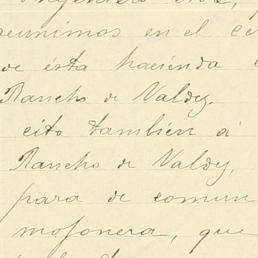 Ingeniero
reunimos en el ce
de ésta hacienda
Rancho de Valdez.
cito también á
Rancho de Valdez,
para de comun
mojonera, que